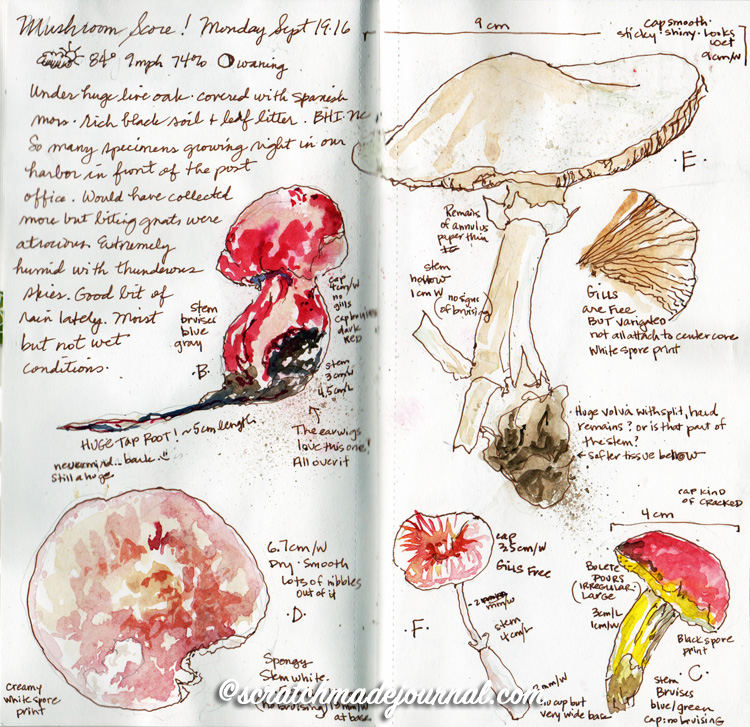 Mushroom Score! Monday Sept 19.16
84° 9mph 74% waning
Under huge live oak. covered with spanish
moss. rich black soil + leaf litter. BHI. NC
So many specimens growing right in our
harbor in front of the post
office. Would have collected
more but biting gnats were
atrocious. Extremely
humid with thunderous
skies. Good bit of
rain lately. Moist
but not wet
conditions.
stem
bruises
blue
gray
B.
cap
4cm/W
no
gills
cap bruises
dark
red
stem
3cm/W
4.5cm/L
HUGE TAP ROOT! ~5cm length
nevermind... bark.
still a huge
The earwigs
love this one!
All over it
6.7cm/W
Dry. Smooth
Lots of nibbles
out of it
.D.
Spongy
Stem white.
no bruising
at base
creamy
white spore
print
9cm
cap smooth.
sticky. shiny. looks
wet
9cm/W
.E.
Remains
of annulus
paper thin
stem
hollow
1cm W
no signs
of bruising
Gills
are Free
BUT varigated
not all attach to center core
White spore print
Huge volva with split, hard
remains? or is that part of
the stem?
softer tissue below
cap
3.5cm/W
Gills Free
.F.
mm/w
stem
4cm/L
no cup but
very wide base
cap kind
of cracked
4cm
BOLETE
pours
irregular.
Large
3cm/L
1cm/W
Black spore
print
C.
stem
Bruises
blue/green
cap: no bruising
©scratchmadejournal.com